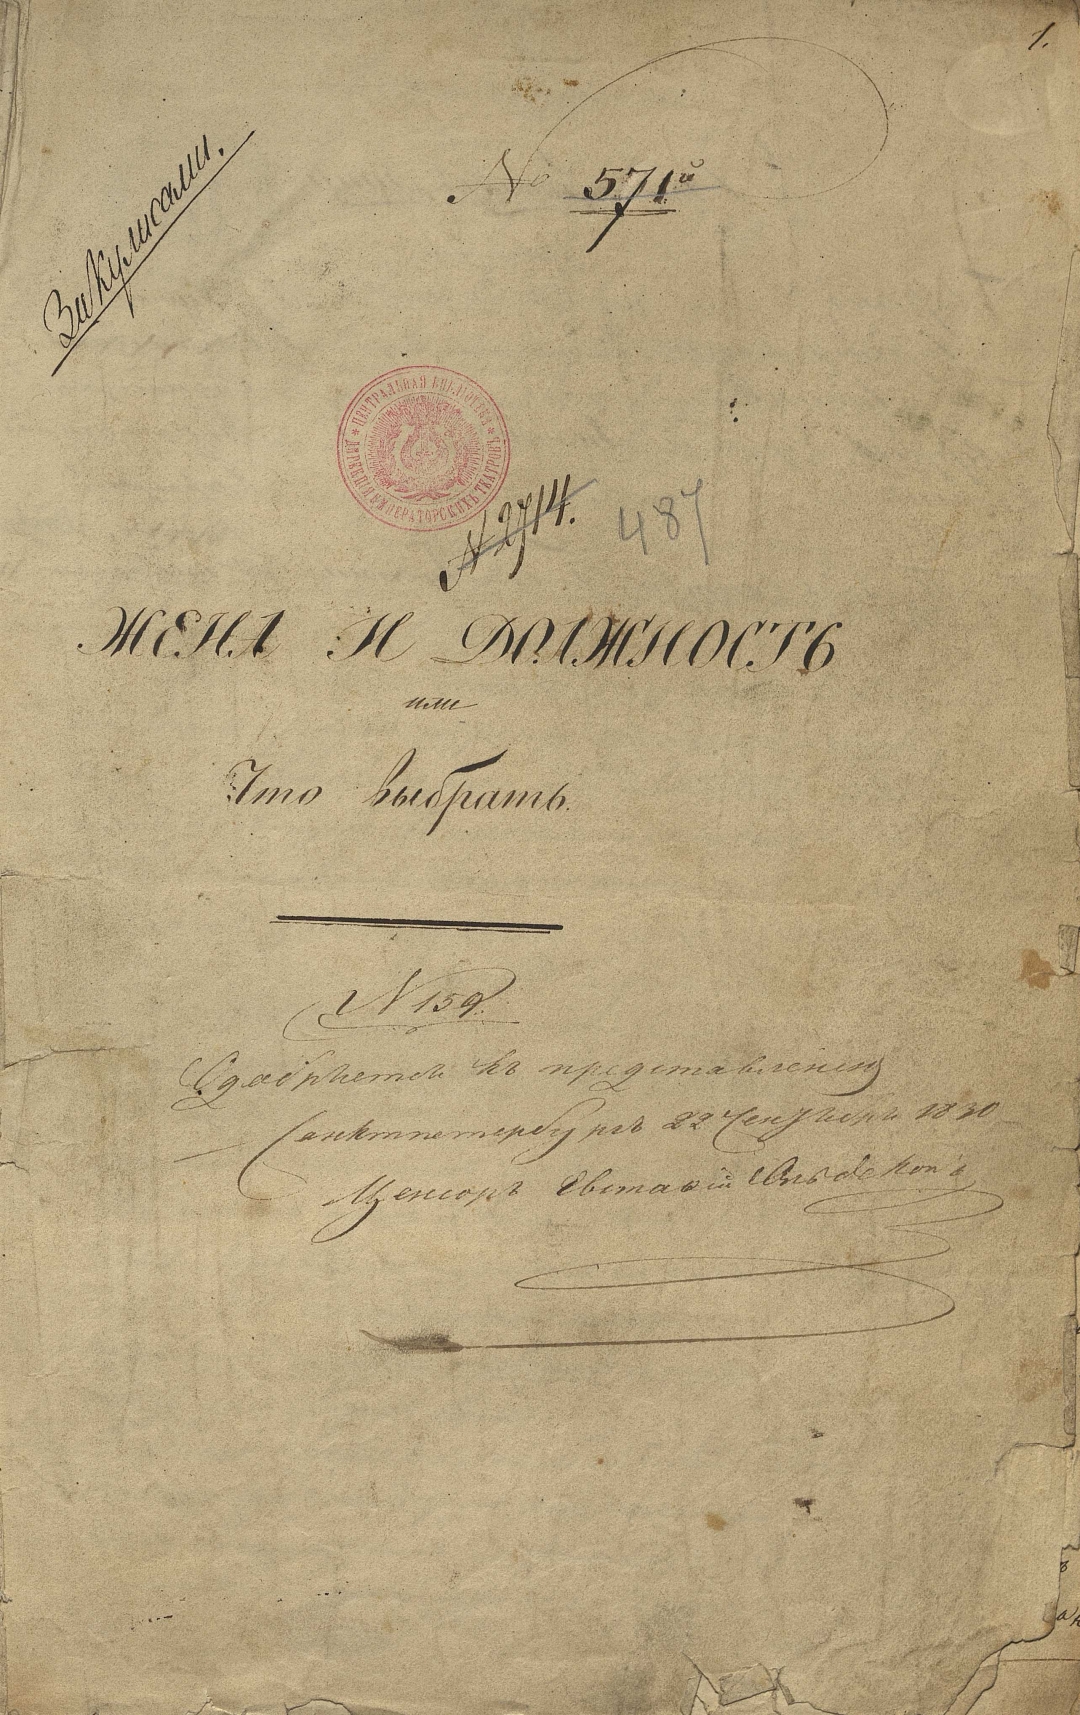 1.
Закулисами.
№ 571й
ЦЕНТРАЛЬНАЯ БИБЛІОТЕКА
ДИРЕКЦІИ ИМПЕРАТОРСКИХЪ ТЕАТРОВЪ
№ 2714.
487
ЖЕНА И ДОЛЖНОСТЬ
или
Что выбрать.
№ 159.
Одобряется къ представленію
Санктпетербургъ 22 Сентября 1830
Ценсоръ Евстафій Ольдекопъ